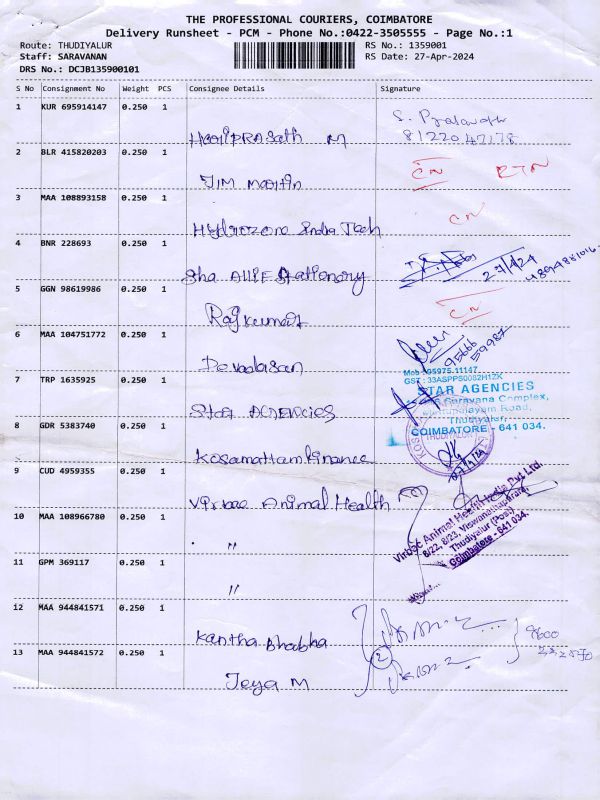 THE PROFESSIONAL COURIERS, COIMBATORE
Delivery Runsheet - PCM - Phone No.:0422-3505555 - Page No.:1
Route: THUDIYALUR
RS No.: 1359001
Staff: SARAVANAN
RS Date: 27-Apr-2024
DRS No.: DCJB135900101
S No Consignment No Weight PCS Consignee Details Signature
1 KUR 695914147 0.250 1
HariPRASath M
8122047178
2 BLR 415820203 0.250 1
JIM Martin
CN RTN
3 MAA 108893158 0.250 1
Hydrozone India Tech
CN
4 BNR 228693 0.250 1
Sha Allif Stationary
27/4/24
5 GGN 98619986 0.250 1
Rajkumar
CN
6 MAA 104751772 0.250 1
Devadasan
95666 59987
7 TRP 1635925 0.250 1
Star AGENCIES
Mob : 95975 11147
GST : 33ASPPS0082H1ZK
STAR AGENCIES
Saravana Complex,
Road,
Thudiyalur,
COIMBATORE - 641 034.
8 GDR 5383740 0.250 1
Kosamattam Finance
9 CUD 4959355 0.250 1
Virbac Animal Health
Virbac Animal Health India Pvt Ltd.
8/22, 8/23, Viswanathapuram,
Thudiyalur (Post)
Coimbatore - 641 034.
10 MAA 108966780 0.250 1
"
11 GPM 369117 0.250 1
"
12 MAA 944841571 0.250 1
Kantha Bhabha
13 MAA 944841572 0.250 1
Jeya M
2